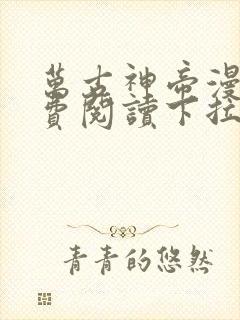 萬古神帝漫
費閱讀下拉
青青的悠然